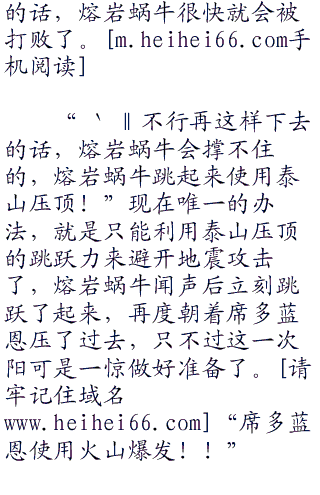 的话，熔岩蜗牛很快就会被
打败了。[m.heihei66.com手
机阅读]
“｀‖不行再这样下去
的话，熔岩蜗牛会撑不住
的，熔岩蜗牛跳起来使用泰
山压顶！”现在唯一的办
法，就是只能利用泰山压顶
的跳跃力来避开地震攻击
了，熔岩蜗牛闻声后立刻跳
跃了起来，再度朝着席多蓝
恩压了过去，只不过这一次
阳可是一惊做好准备了。[请
牢记住域名
www.heihei66.com]“席多蓝
恩使用火山爆发！！”